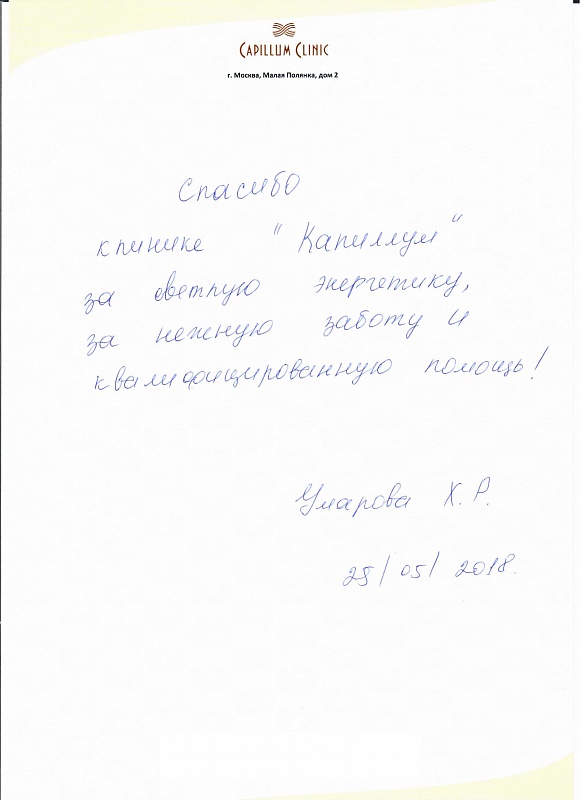 CAPILLUM CLINIC
г. Москва, Малая Полянка, дом 2
Спасибо
клинике "Капиллум"
за светлую энергетику,
за нежную заботу и
квалифицированную помощь!
Умарова Х. Р.
25/05/2018.